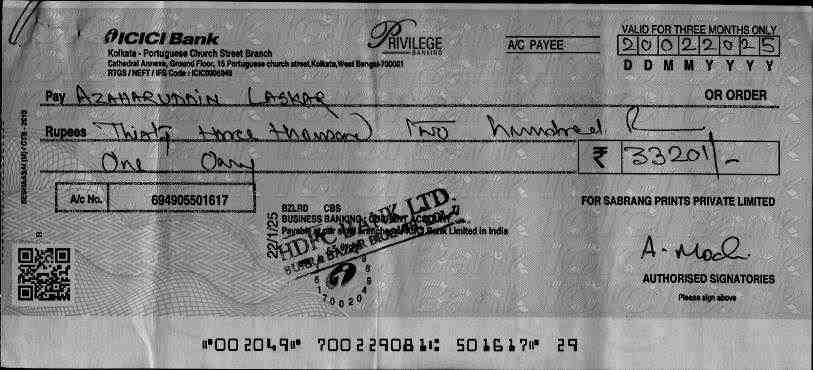 ICICI Bank
Kolkata - Portuguese Church Street Branch
Cathedral Annexe, Ground Floor, 15 Portuguese church street, Kolkata, West Bengal-700001
RTGS / NEFT / IFS Code : ICIC0006949
PRIVILEGE
BANKING
A/C PAYEE
VALID FOR THREE MONTHS ONLY
20022025
D D M M Y Y Y Y
Pay AZAHARUDDIN LASKAR OR ORDER
Rupees Thirty three thousand Two hundred
One Only ₹ 33201/-
A/c No. 694905501617
BZLRD CBS
BUSINESS BANKING: CURRENT ACCOUNT
Payable at our branches ICICI Bank Limited in India
22/1/25
HDFC BANK LTD.
BURRA BAZAR
FOR SABRANG PRINTS PRIVATE LIMITED
AUTHORISED SIGNATORIES
Please sign above
⑈002049⑈ 700229081⑆ 501617⑈ 29